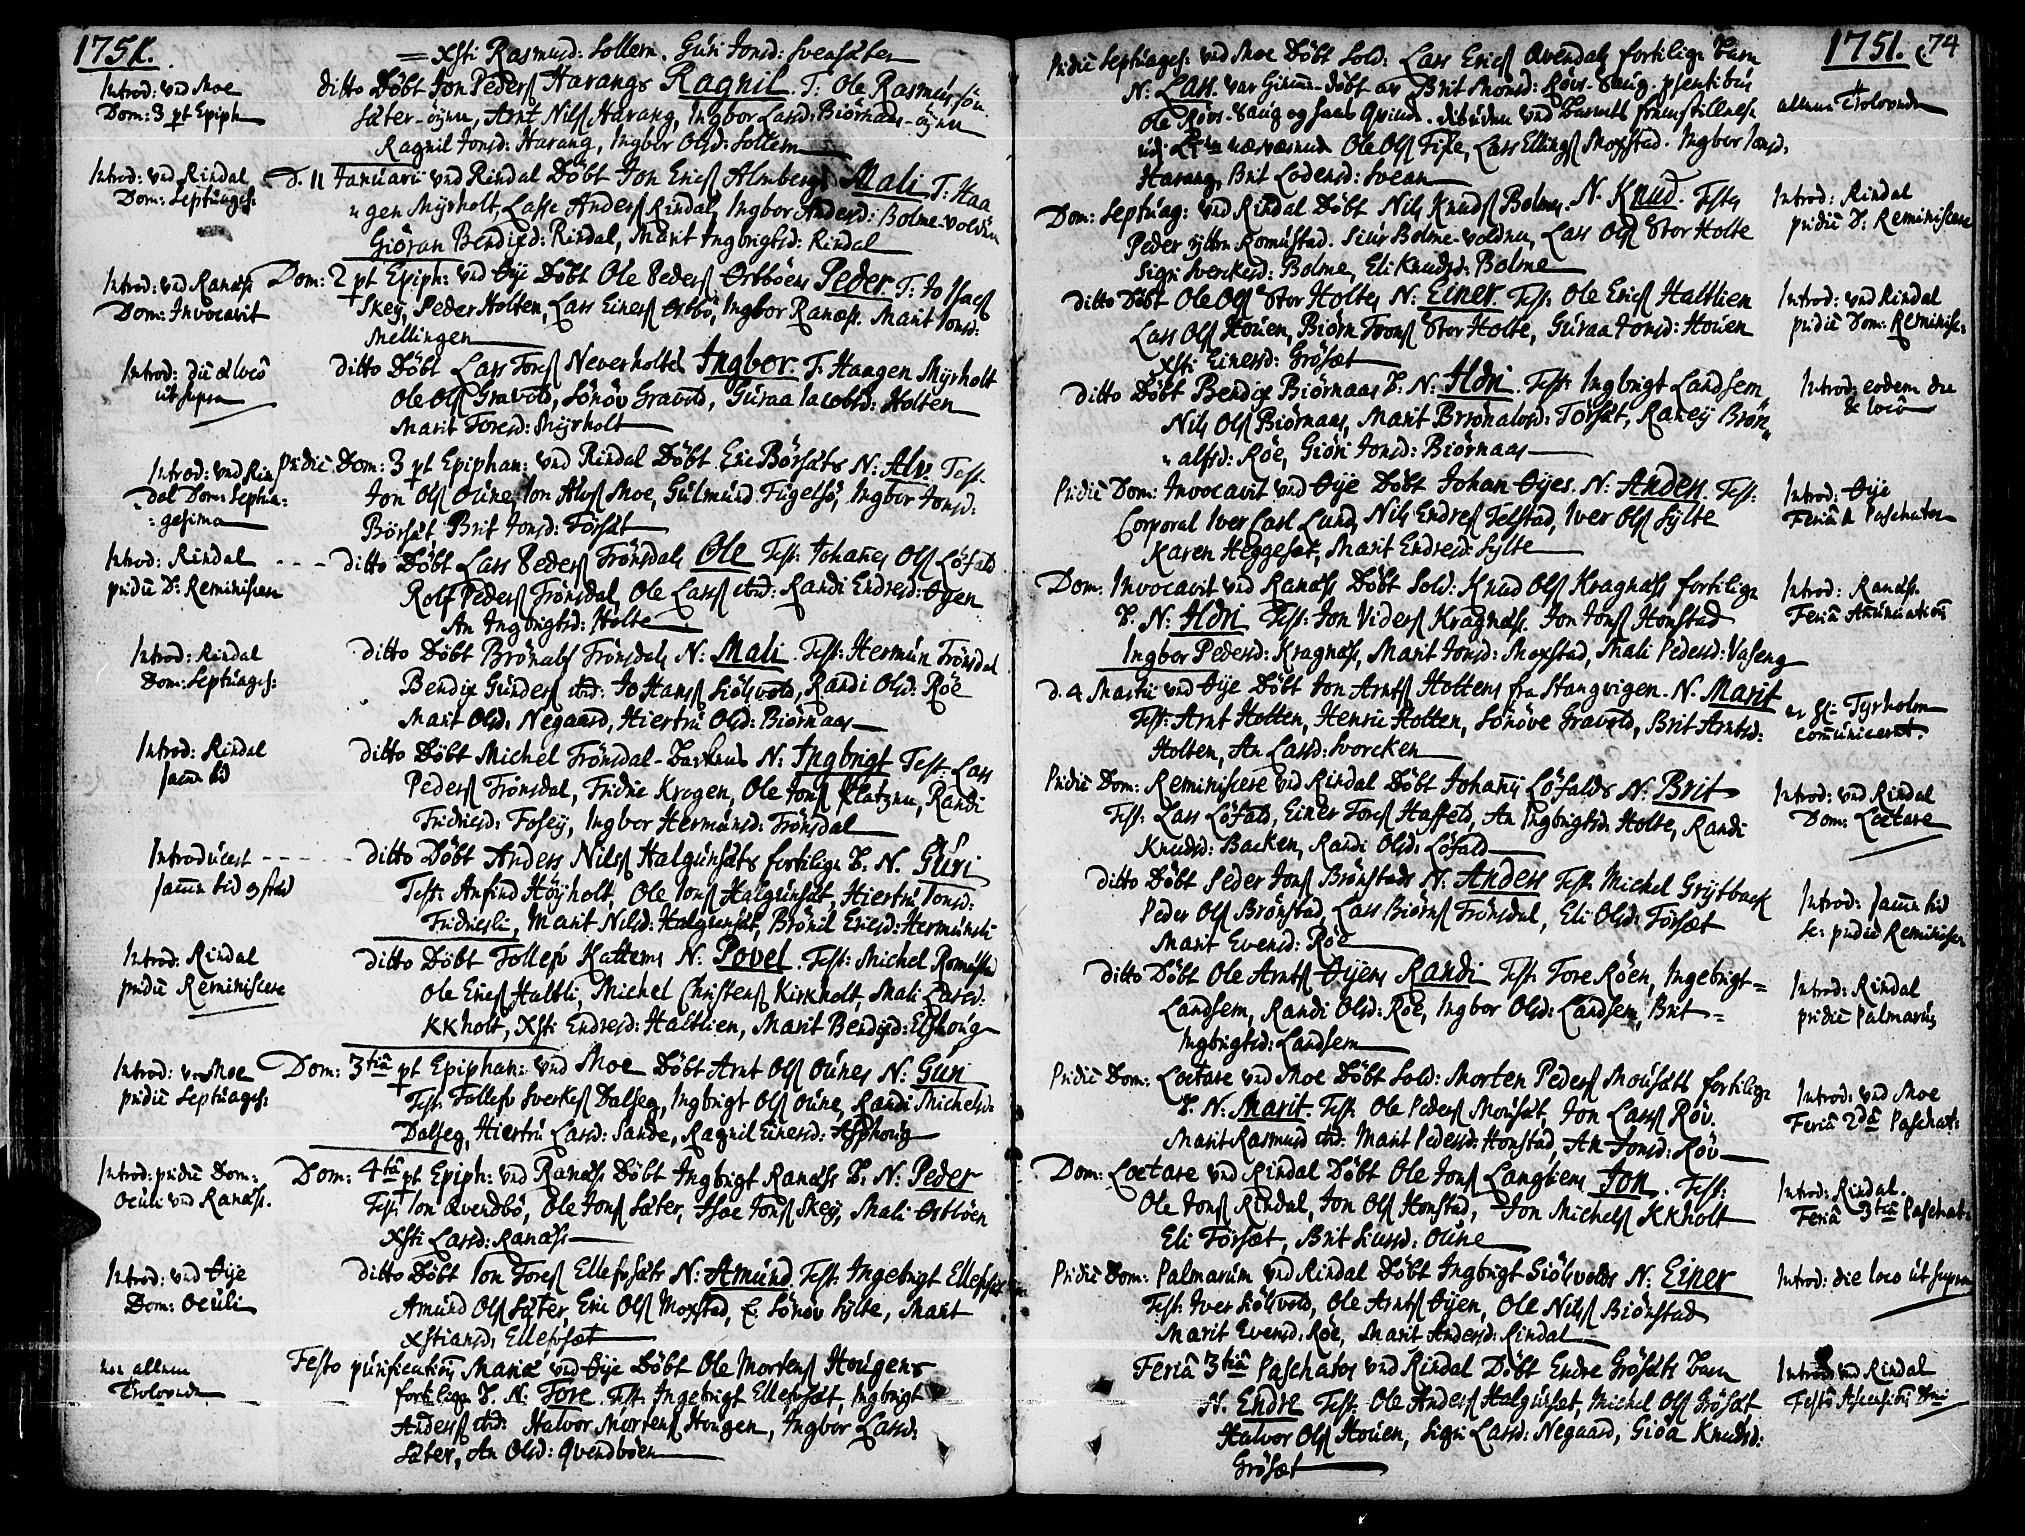 1751.
= Xsti Rasmusd: Sollem. Guri Jonsd: Svensäter
Introd: ved Moe
Dom: 3 pt Epiph
ditto Döbt Jon Peders Harangs Ragnil. T: Ole Rasmussön
Sæter-öyen, Arnt Nils Harang, Ingbor Larsd: Biörnaas-öyen
Ragnil Jonsd: Harang, Ingbor Olsd: Sollem
Introd: ved Rindal
Dom: Septuages:
D. 11 Januarii ved Rindal Döbt Jon Erics Almbergs Mali T: Haa
"gen Myrholt, Lasse Anders Rindal, Ingbor Andersd: Bolme-volden
Giöran Bendixd: Rindal, Marit Ingbrigtsd: Rindal
Introd: ved Ranæss
Dom: Invocavit
Dom: 2 pt Epiph: ved Öye Döbt Ole Peders Ørtböens Peder T: Jo Isacs
Skey, Peder Holten, Lars Einers Ørtbö, Ingbor Ranæss. Marit Jonsd:
Mellingen
Introd: die & loco
ut supra
ditto Döbt Lars Tores Neverholtes Ingbor. T: Haagen Myrholt
Ole Ols Gravold, Sönöv Gravold, Guraa Iacobsd: Holten
Marit Toresd: Myrholt
Introd: ved Rin
dal Dom: Septua=
=gesima
Pridie Dom: 3 pt Epiphan: ved Rindal Döbt Eric Börsæts N: Alv. Test.
Jon Ols Oune, Ion Alvs Moe, Gulmund Fugelsö, Ingbor Jonsd:
Börsæt, Brit Jonsd: Torsæt
Introd: Rindal
pridie D: Reminiscere
ditto Döbt Lars Peders Trönsdals Ole Test: Johanes Ols Löfald
Rolf Peders Trönsdal, Ole Lars ibid: Randi Endresd: Öyen
An Ingbrigtsd: Holte
Introd: Rindal
Dom: Septuages:
ditto Döbt Brönals Trönsdals N: Mali. Test: Hermun Trönsdal
Bendix Gunders ibid: Jo Hans Siölsvold, Randi Olsd: Röe
Marit Olsd: Negaard, Hiertru Olsd: Biörnaas
Introd: Rindal
samm tid
ditto Döbt Michel Trönsdal-Backens N: Ingbrigt Test: Lars
Peders Trönsdal, Fridric Krogen, Ole Jons Platzen, Randi
Fridricsd: Fosey, Ingbor Hermunsd: Trönsdal
Introducert
samm tid og sted
ditto Döbt Anders Nils Halgunsæts fortilige B. N. Guri
Test: Anfind Höyholt, Ole Ions Halgunsæt, Hiertru Ionsd:
Fridricsli, Marit Nilsd: Halgunsæt, Brönil Ericsd: Hermunsli
Introd: Rindal
pridie Reminiscere
ditto Döbt Tollefs Kattems N: Povel. Test: Michel Romusstad
Ole Erics Haltli, Michel Christens Kirkholt, Mali Larsd:
KKholt, Xsti Endresd: Haltlien, Marit Bendixd: Elshoug
Introd: ved Moe
pridie Septuages:
Dom: 3tiâ pt Epiphan: ved Moe Döbt Arnt Ols Ounes N: Guri
Test: Tollefv Sverkes Dalseg, Ingbrigt Ols Oune, Randi Michelsd:
Dalseg, Hiertru Larsd: Sande, Ragnil Einersd: Asphoug
Introd: pridie Dom:
Oculi ved Ranæss.
Dom: 4tâ pt Epiph: ved Ranæss Döbt Ingbrigt Ranæss B. N: Peder
Test: Ion Qvendbö, Ole Jons Sæter, Isac Jons Skey, Mali Ørtböen
Xsti Larsd: Ranæss
Introd: ved Öye
Dom: Oculi
ditto Döbt Ion Tores Ellefvsæts N: Amund. Test: Ingebrigt Ellefvsæt
Amund Ols Sæter, Eric Ols Moxstad, E. Sönöv Sylte, Marit
Xstiansd: Ellefvsæt
Festo purificationis Mariæ ved Öye Döbt Ole Mortens Hougens
fortilige B. N. Tore. Test: Ingebrigt Ellefvsæt, Ingbrigt
Anders ibid: Halvor Mortens Hougen, Ingbor Larsd:
Sæter, An Olsd: Qvendböen
1751. 74
Pridie Septuages: ved Moe Döbt Sold: Lars Erics Qvendals fortilige Barn
N: Lars. var hiemme-döbt av Brit Monsd: Rövs-Haug, psentibus
Harang, Brit Lodensd: Svean
Dom: Septuag: ved Rindal Döbt Nils Knuds Bolmes N. Knud. Testes
Peder Romustad. Siur Bolme-voldnen, Lars Ols Stor Holte
Sigri Sverckesd: Bolme, Eli Knudsd: Bolme
Introd: Rindal
pridie D: Reminiscere
ditto Döbt Ole Ols Stor Holtes N: Einer. Test: Ole Erics Haltlien
Lars Ols Houen, Biörn Tores Stor Holte, Guraa Jonsd: Houen
Xsti Einersd: Grösæt
Introd: ved Rindal
pridie Dom: Reminisc:
ditto Döbt Bendix Biörnaas B. N: Ildri. Test: Ingbrigt Landsem,
Nils Ols Biörnaas, Marit Brönalvsd: Torsæt, Raney Brön"
"alfsd: Röe, Giöri Jonsd: Biörnaas
Introd: eodem die
& loco
Pridie Dom: Invocavit ved Öye Döbt Johan Öyes. N: Anders. Test:
Corporal Iver Carl Lund, Nils Endres Telstad, Iver Ols Sylte
Karen Heggeset, Marit Endresd: Sylte
Introd: Öye
Feriâ Paschatos
Dom: Invocavit ved Ranæss Döbt Sold: Knud Ols Kragnæss fortilige
B. N: Ildri Test: Jon Viders Kragnæss. Jon Jons Honstad
Ingbor Pedersd: Kragnæss, Marit Jonsd: Moxstad, Mali Pedersd: Vaseng
Introd: Ranæss.
Feriâ Anunciationis
d. 4 Martii ved Öye Döbt Jon Arnts Holtens fra Stangvigen. N. Marit
Test: Arnt Holten, Henric Holten, Sönöve Gravold, Brit Arntsd:
Holten, An Larsd: Svorcken
av Hr: Tyrholm
comunicerit.
Pridie Dom: Reminiscere ved Rindal Döbt Johanes Löfalds N: Brit
Test: Lars Löfald, Einer Tores Haffeld, An Ingbrigtsd: Holte, Randi
Knudsd: Backen, Randi Olsd: Löfald
Introd: ved Rindal
Dom: Lœtare
ditto Döbt Peder Jons Brönstads N: Anders Test: Michel Grytback
Peder Ols Brönstad, Lars Biörns Trönsdal, Eli Olsd: Torsæt
Marit Evensd: Röe
Introd: samm tid
sc: pridie Reminiscer
ditto Döbt Ole Arnts Öyens Randi Test: Tore Röen, Ingebrigt=
Landsem, Randi Olsd: Röe, Ingbor Olsd: Landsem, Brit=
Ingbrigtsd: Landsem
Introd: Rindal
pridie Palmarum
Pridie Dom: Lœtare ved Moe Döbt Sold: Morten Peders Mousæts fortilige
B. N: Marit. Test: Ole Peders Mousæt, Jon Lars Röv.
Marit Rasmusd ibid: Marit Pedersd: Honstad, An Jonsd: Röv
Introd: ved Moe
Feriâ 2dâ Paschat:
Dom: Lœtare ved Rindal Döbt Ole Jons Langliens Jon. Test:
Ole Jons Rindal, Jon Ols Honstad, Jon Michels KKholt
Eli Torsæt, Brit Siursd: Oune
Introd: Rindal.
Feriâ 3tiâ Paschat:
Pridie Dom: Palmarum ved Rindal Döbt Ingbrigt Siölsvolds N: Einer
Test: Iver Siölsvold, Ole Arnts Öyen, Ole Nils Biönstad
Marit Evensd: Röe, Marit Andersd: Rindal
Introd: die loco ut supra
Feriâ 3tiâ Paschatos ved Rindal Döbt Endre Grösæts Barn
N. Endre Test: Ole Anders Halgunset, Michel Ols Grösæt
Halvor Ols Houen, Sigri Larsd: Negaard, Gioa Knudsd:
Grösæt
Introd: ved Rindal
Festo Ascensionis Dni